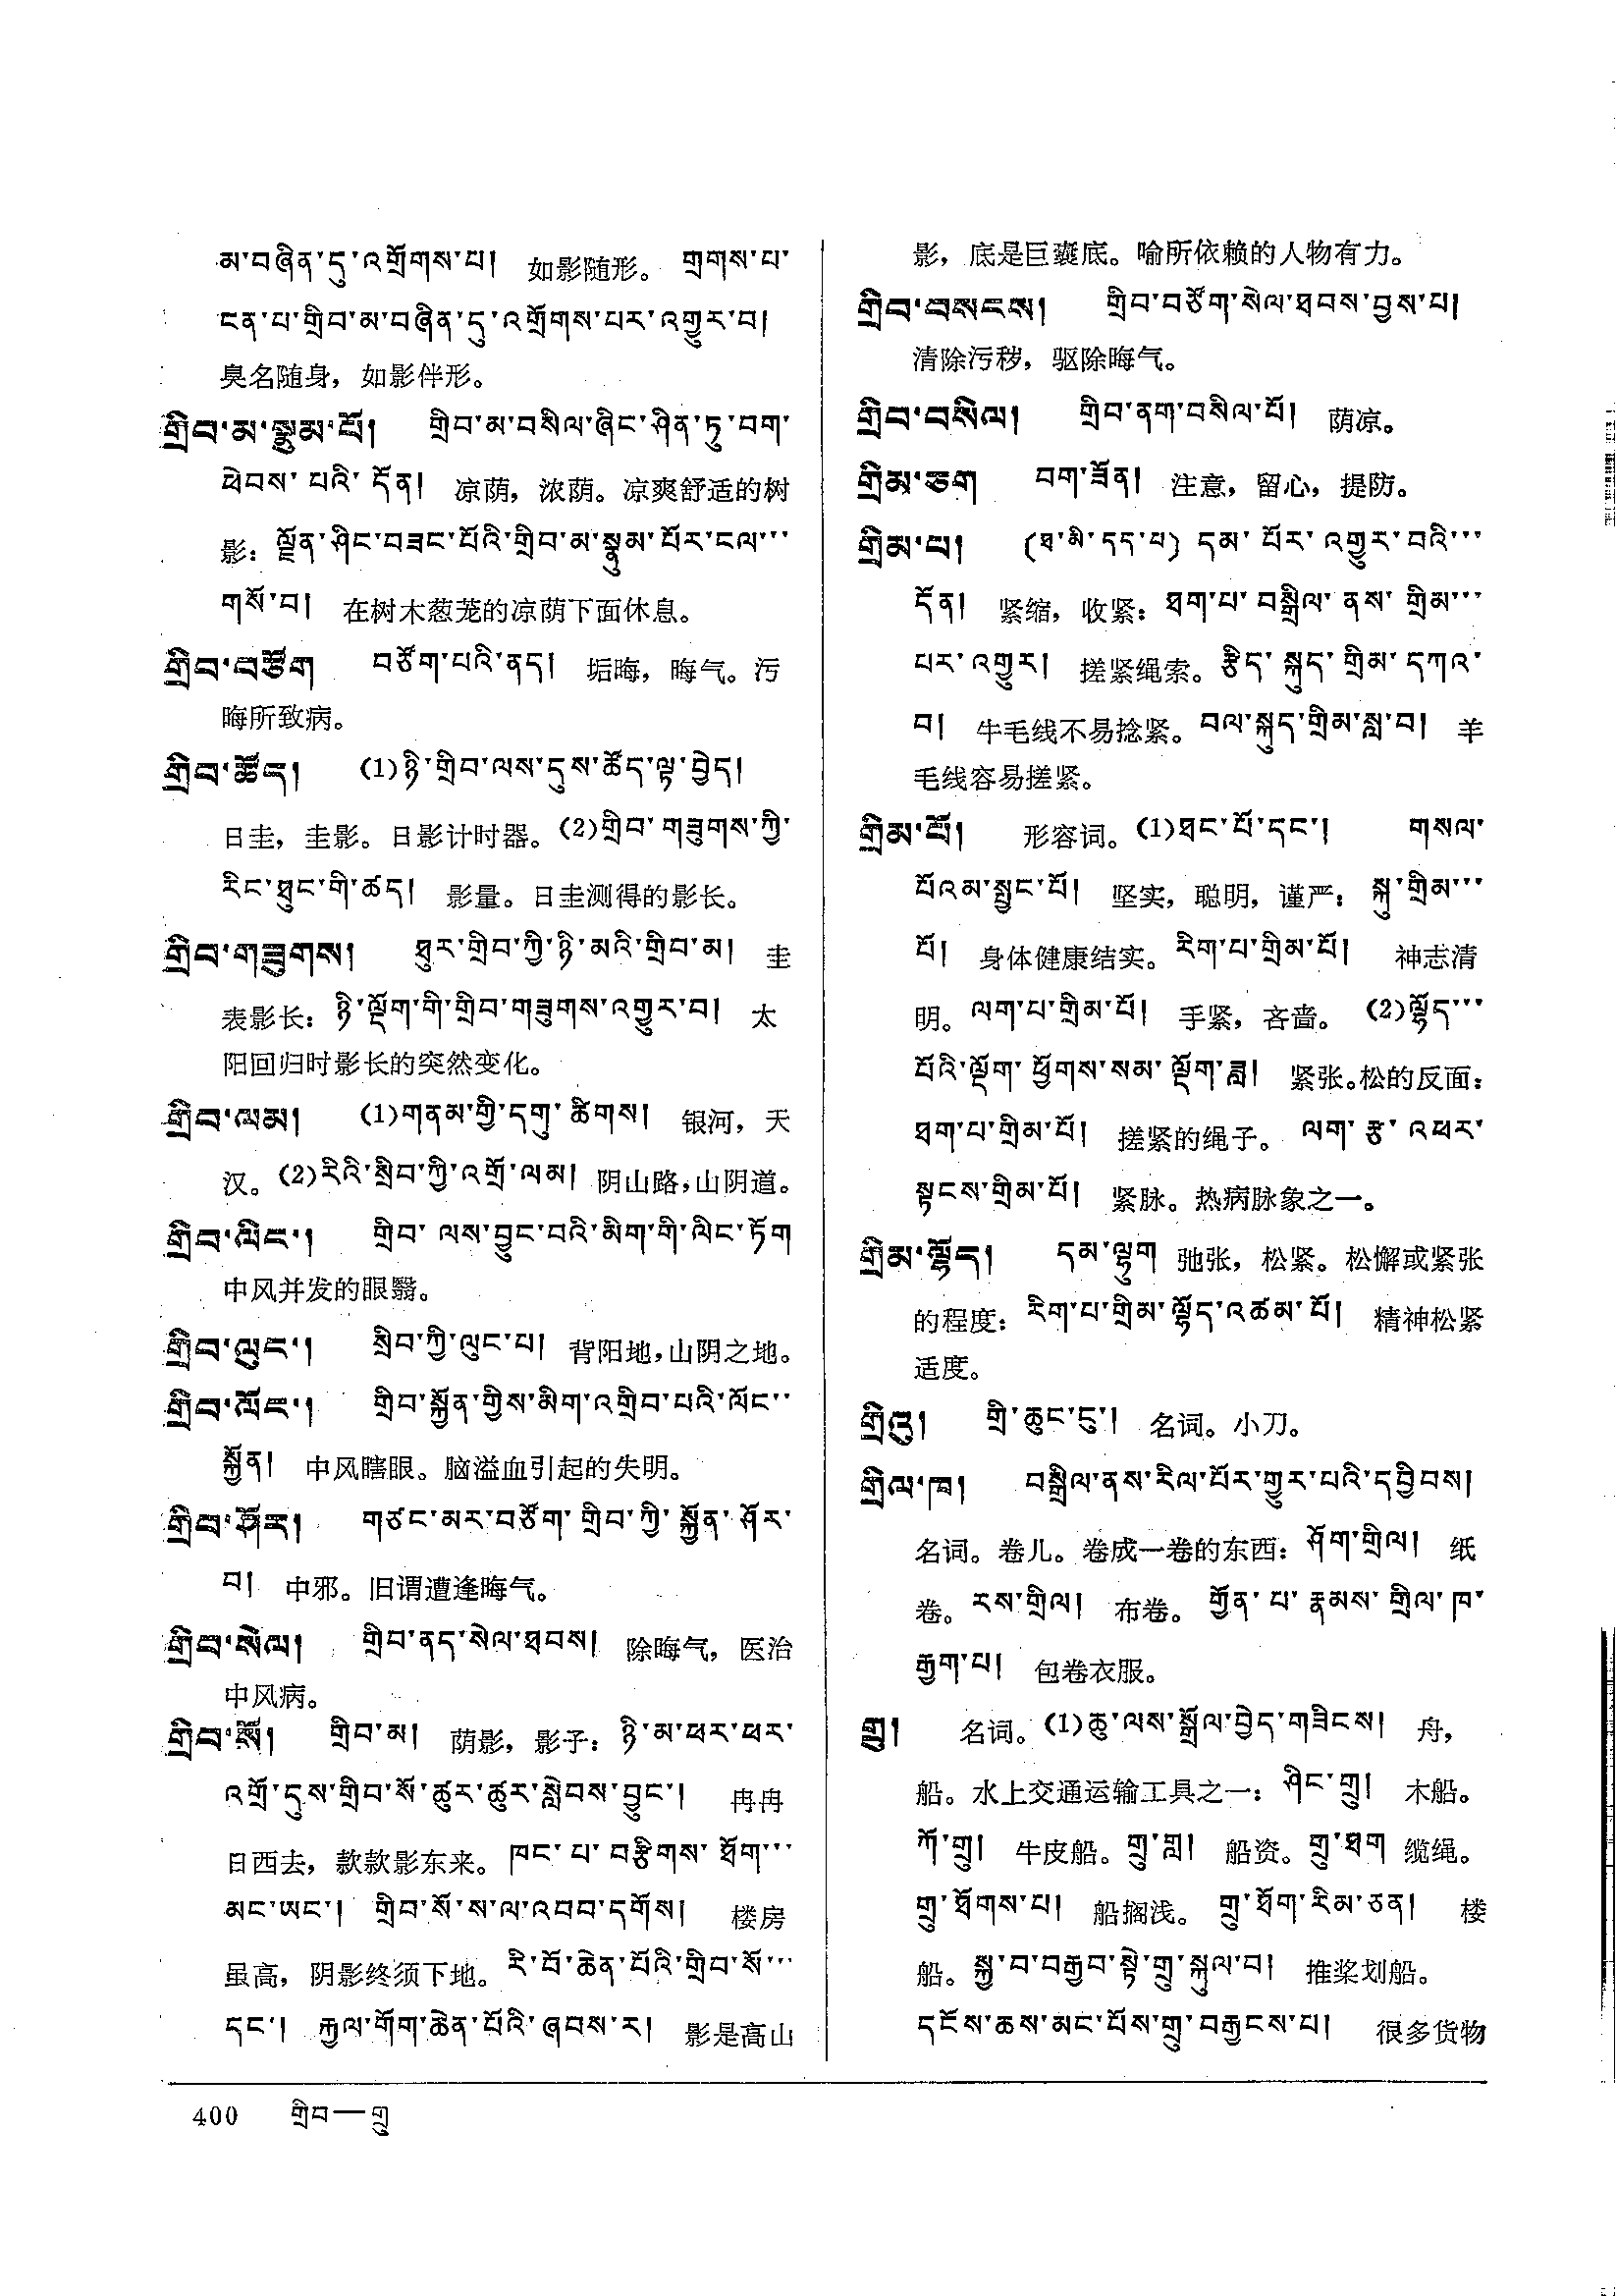 མ་བཞིན་དུ་འགྲོགས་པ། 如影随形。 གྲགས་པ་
ངན་པ་གྲིབ་མ་བཞིན་དུ་འགྲོགས་པར་འགྱུར་བ།
臭名随身，如影伴形。
གྲིབ་མ་སྣུམ་པོ། གྲིབ་མ་བསིལ་ཞིང་ཤིན་ཏུ་བག་
ཕེབས་ པའི་ དོན། 凉荫，浓荫。凉爽舒适的树
影：ལྗོན་ཤིང་བཟང་པོའི་གྲིབ་མ་སྣུམ་པོར་ངལ་་་
གསོ་བ། 在树木葱茏的凉荫下面休息。
གྲིབ་བཙོག བཙོག་པའི་ནད། 垢晦，晦气。污
晦所致病。
གྲིབ་ཚོད། (1)ཉི་གྲིབ་ལས་དུས་ཚོད་ལྟ་བྱེད།
日圭，圭影。日影计时器。(2)གྲིབ་ གཟུགས་ཀྱི་
རིང་ཐུང་གི་ཚད། 影量。日圭测得的影长。
གྲིབ་གཟུགས། ཐུར་གྲིབ་ཀྱི་ཉི་མའི་གྲིབ་མ། 圭
表影长：ཉི་ལྡོག་གི་གྲིབ་གཟུགས་འགྱུར་བ། 太
阳回归时影长的突然变化。
གྲིབ་ལམ། (1)གནམ་གྱི་དགུ་ཚིགས། 银河，天
汉。(2)རིའི་སྲིབ་ཀྱི་འགྲོ་ལམ། 阴山路，山阴道。
གྲིབ་ལིང་། གྲིབ་ ལས་བྱུང་བའི་མིག་གི་ལིང་ཏོག
中风并发的眼翳。
གྲིབ་ལུང་། སྲིབ་ཀྱི་ལུང་པ། 背阳地，山阴之地。
གྲིབ་ལོང་། གྲིབ་སྐྱོན་གྱིས་མིག་འགྲིབ་པའི་ལོང་་
སྐྱོན། 中风瞎眼。脑溢血引起的失明。
གྲིབ་ཤོར། གཙང་མར་བཙོག་ གྲིབ་ཀྱི་ སྐྱོན་ ཤོར་
བ། 中邪。旧谓遭逢晦气。
གྲིབ་སེལ། གྲིབ་ནད་སེལ་ཐབས། 除晦气，医治
中风病。
གྲིབ་སོ། གྲིབ་མ། 荫影，影子：ཉི་མ་ཕར་ཕར་
འགྲོ་དུས་གྲིབ་སོ་ཚུར་ཚུར་སླེབས་བྱུང་། 冉冉
日西去，款款影东来。ཁང་ པ་ བརྩིགས་ ཐོག་་་
མང་ཡང་། གྲིབ་སོ་ས་ལ་འབབ་དགོས། 楼房
虽高，阴影终须下地。རི་བོ་ཆེན་པོའི་གྲིབ་སོ་་་
དང་། རྐྱལ་གོག་ཆེན་པོའི་ཞབས་ར། 影是高山
影，底是巨囊底。喻所依赖的人物有力。
གྲིབ་བསངས། གྲིབ་བཙོག་སེལ་ཐབས་བྱས་པ།
清除污秽，驱除晦气。
གྲིབ་བསིལ། གྲིབ་ནག་བསིལ་པོ། 荫凉。
གྲིམ་ཅག བག་ཟོན། 注意，留心，提防。
གྲིམ་པ། (ཐ་མི་དད་པ) དམ་ པོར་ འགྱུར་བའི་་་
དོན། 紧缩，收紧：ཐག་པ་ བསྒྲིལ་ ནས་ གྲིམ་་་
པར་འགྱུར། 搓紧绳索。རྩིད་ སྐུད་ གྲིམ་ དཀའ་
བ། 牛毛线不易捻紧。བལ་སྐུད་གྲིམ་སླ་བ། 羊
毛线容易搓紧。
གྲིམ་པོ། 形容词。(1)ཐང་པོ་དང་། གསལ་
པོའམ་སྤྱང་པོ། 坚实，聪明，谨严：སྐུ་གྲིམ་་་
པོ། 身体健康结实。རིག་པ་གྲིམ་པོ། 神志清
明。ལག་པ་གྲིམ་པོ། 手紧，吝啬。(2)ལྷོད་་་
པོའི་ལྡོག་ ཕྱོགས་སམ་ ལྡོག་ཟླ། 紧张。松的反面：
ཐག་པ་གྲིམ་པོ། 搓紧的绳子。ལག་ རྩ་ འཕར་
སྟངས་གྲིམ་པོ། 紧脉。热病脉象之一。
གྲིམ་ལྷོད། དམ་ལྷུག 弛张，松紧。松懈或紧张
的程度：རིག་པ་གྲིམ་ལྷོད་འཚམ་པོ། 精神松紧
适度。
གྲིའུ། གྲི་ཆུང་ངུ་། 名词。小刀。
གྲིལ་ཁ། བསྒྲིལ་ནས་རིལ་པོར་གྱུར་པའི་དབྱིབས།
名词。卷儿。卷成一卷的东西：ཤོག་གྲིལ། 纸
卷。རས་གྲིལ། 布卷。གྱོན་ པ་ རྣམས་ གྲིལ་ ཁ་
རྒྱག་པ། 包卷衣服。
གྲུ། 名词。(1)ཆུ་ལས་སྒྲོལ་བྱེད་གཟིངས། 舟，
船。水上交通运输工具之一：ཤིང་གྲུ། 木船。
ཀོ་གྲུ། 牛皮船。གྲུ་གླ། 船资。གྲུ་ཐག 缆绳。
གྲུ་ཐོགས་པ། 船搁浅。གྲུ་ཐོག་རིམ་ཅན། 楼
船。སྐྱ་བ་བརྒྱབ་སྟེ་གྲུ་སྐུལ་བ། 推桨划船。
དངོས་ཆས་མང་པོས་གྲུ་བརྒྱངས་པ། 很多货物
400 གྲིབ—གྲུ